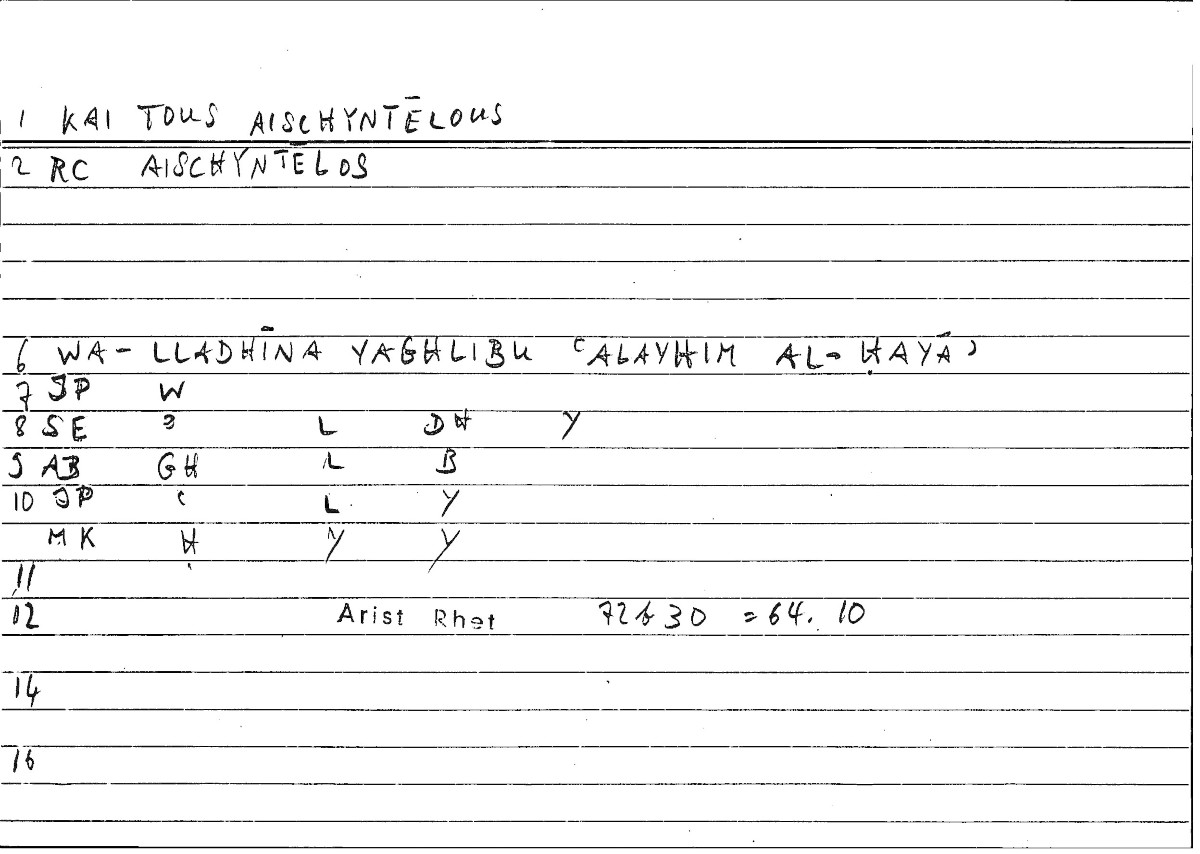 1 KAI TOUS AISCHYNTĒLOUS
2 RC AISCHYNTĒLOS
6 WA- LLADHĪNA YAGHLIBU ʿALAYHIM AL-ḤAYĀʾ
7 JP W
8 SE ʾ L DH Y
9 AB GH L B
10 JP ʿ L Y
MK Ḥ Y Y
11
12 Arist Rhet 72b30 = 64. 10
14
16